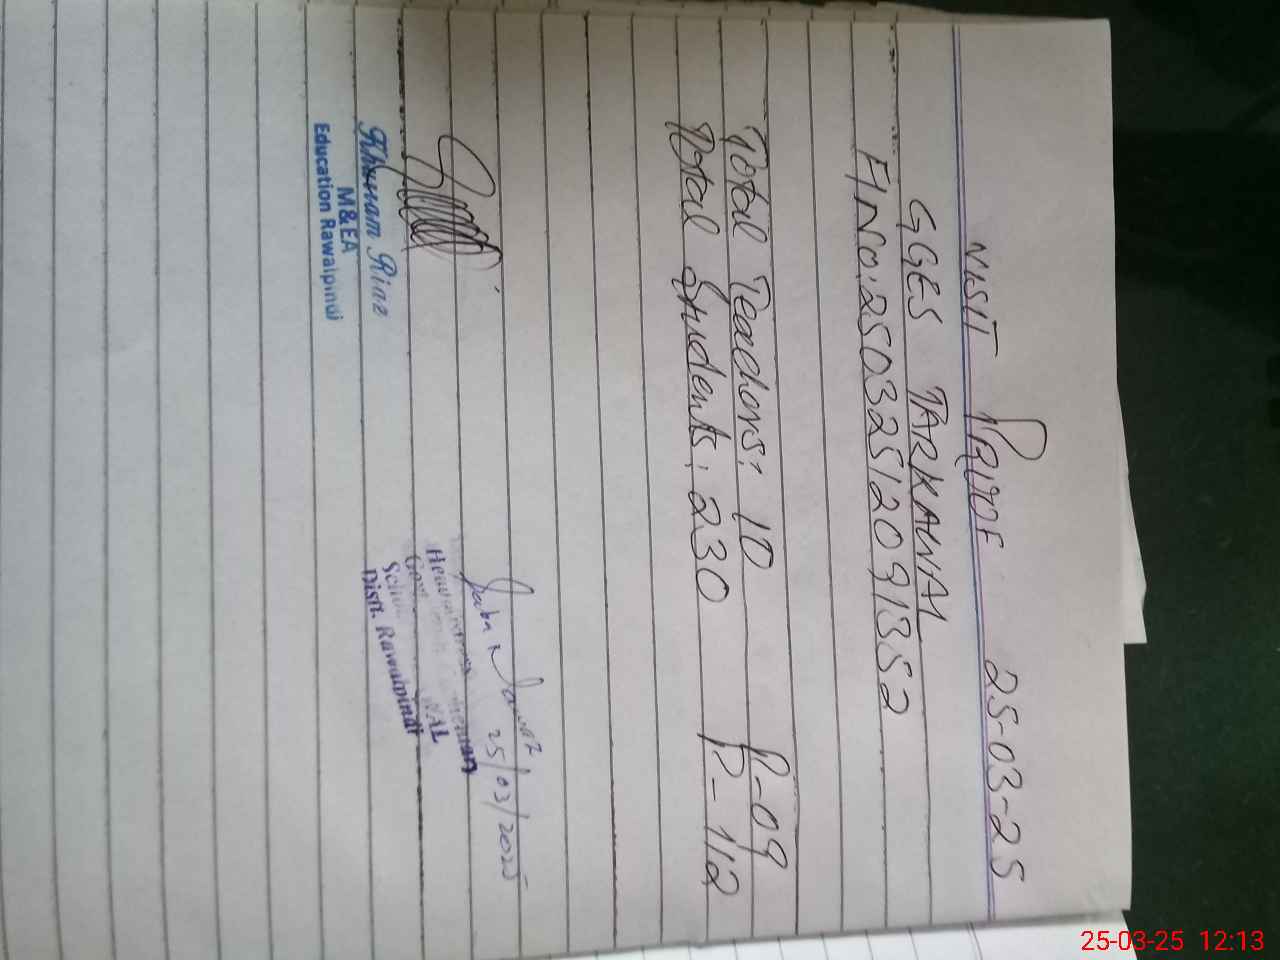 VISIT PROOF 25-03-25
GGES TARKAWAL
F/No: 25032512091352
Total Teachers: 10 P-09
Total Students: 230 P-112
Saba Nawaz
25/03/2025
Khanam Riaz
M&EA
Education Rawalpindi
NAL
Distt. Rawalpindi
25-03-25 12:13